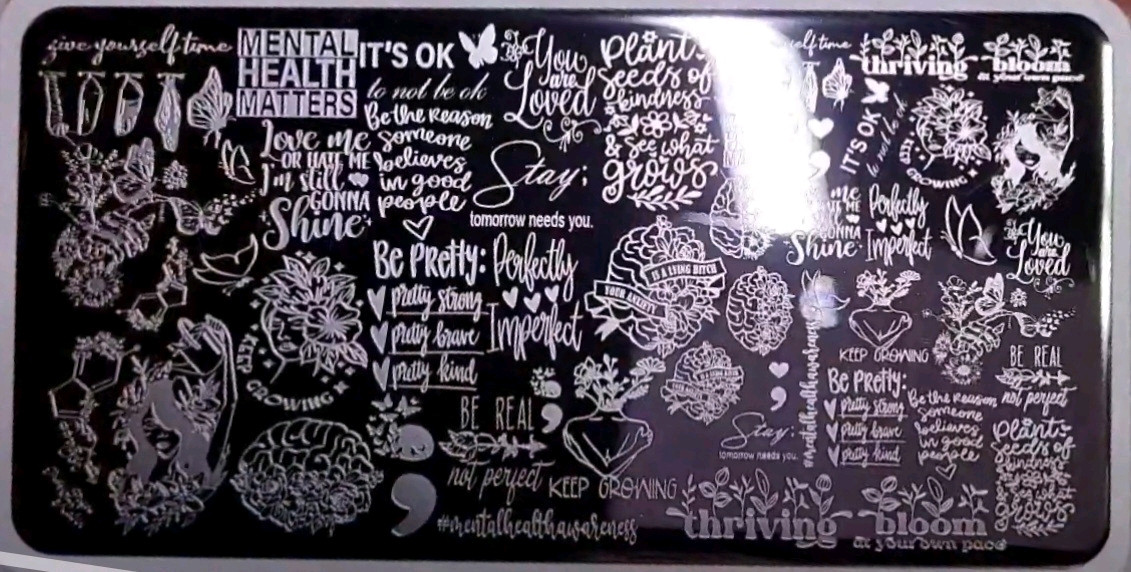 give yourself time
MENTAL
HEALTH
MATTERS
IT'S OK
to not be ok
You
are
Loved
Plant
seeds of
kindness
& see what
grows
self time
thriving
bloom
at your own pace
Love me
OR HATE ME
I'm still
GONNA
Shine
Be the reason
someone
believes
in good
people
Stay;
tomorrow needs you.
IT'S OK
to not be ok
KEEP
GROWING
me
GONNA
Shine
Perfectly
Imperfect
You
are
Loved
Be Pretty:
pretty strong
pretty brave
pretty kind
Perfectly
Imperfect
YOUR ANXIETY
IS A LYING BITCH
KEEP
GROWING
BE REAL
not perfect
;
KEEP GROWING
#mentalhealthawareness
YOUR ANXIETY
IS A LYING BITCH
;
Stay;
tomorrow needs you.
#mentalhealthawareness
KEEP GROWING
Be Pretty:
pretty strong
pretty brave
pretty kind
Be the reason
someone
believes
in good
people
BE REAL
not perfect
Plant
seeds of
kindness
& see what
grows
thriving
bloom
at your own pace